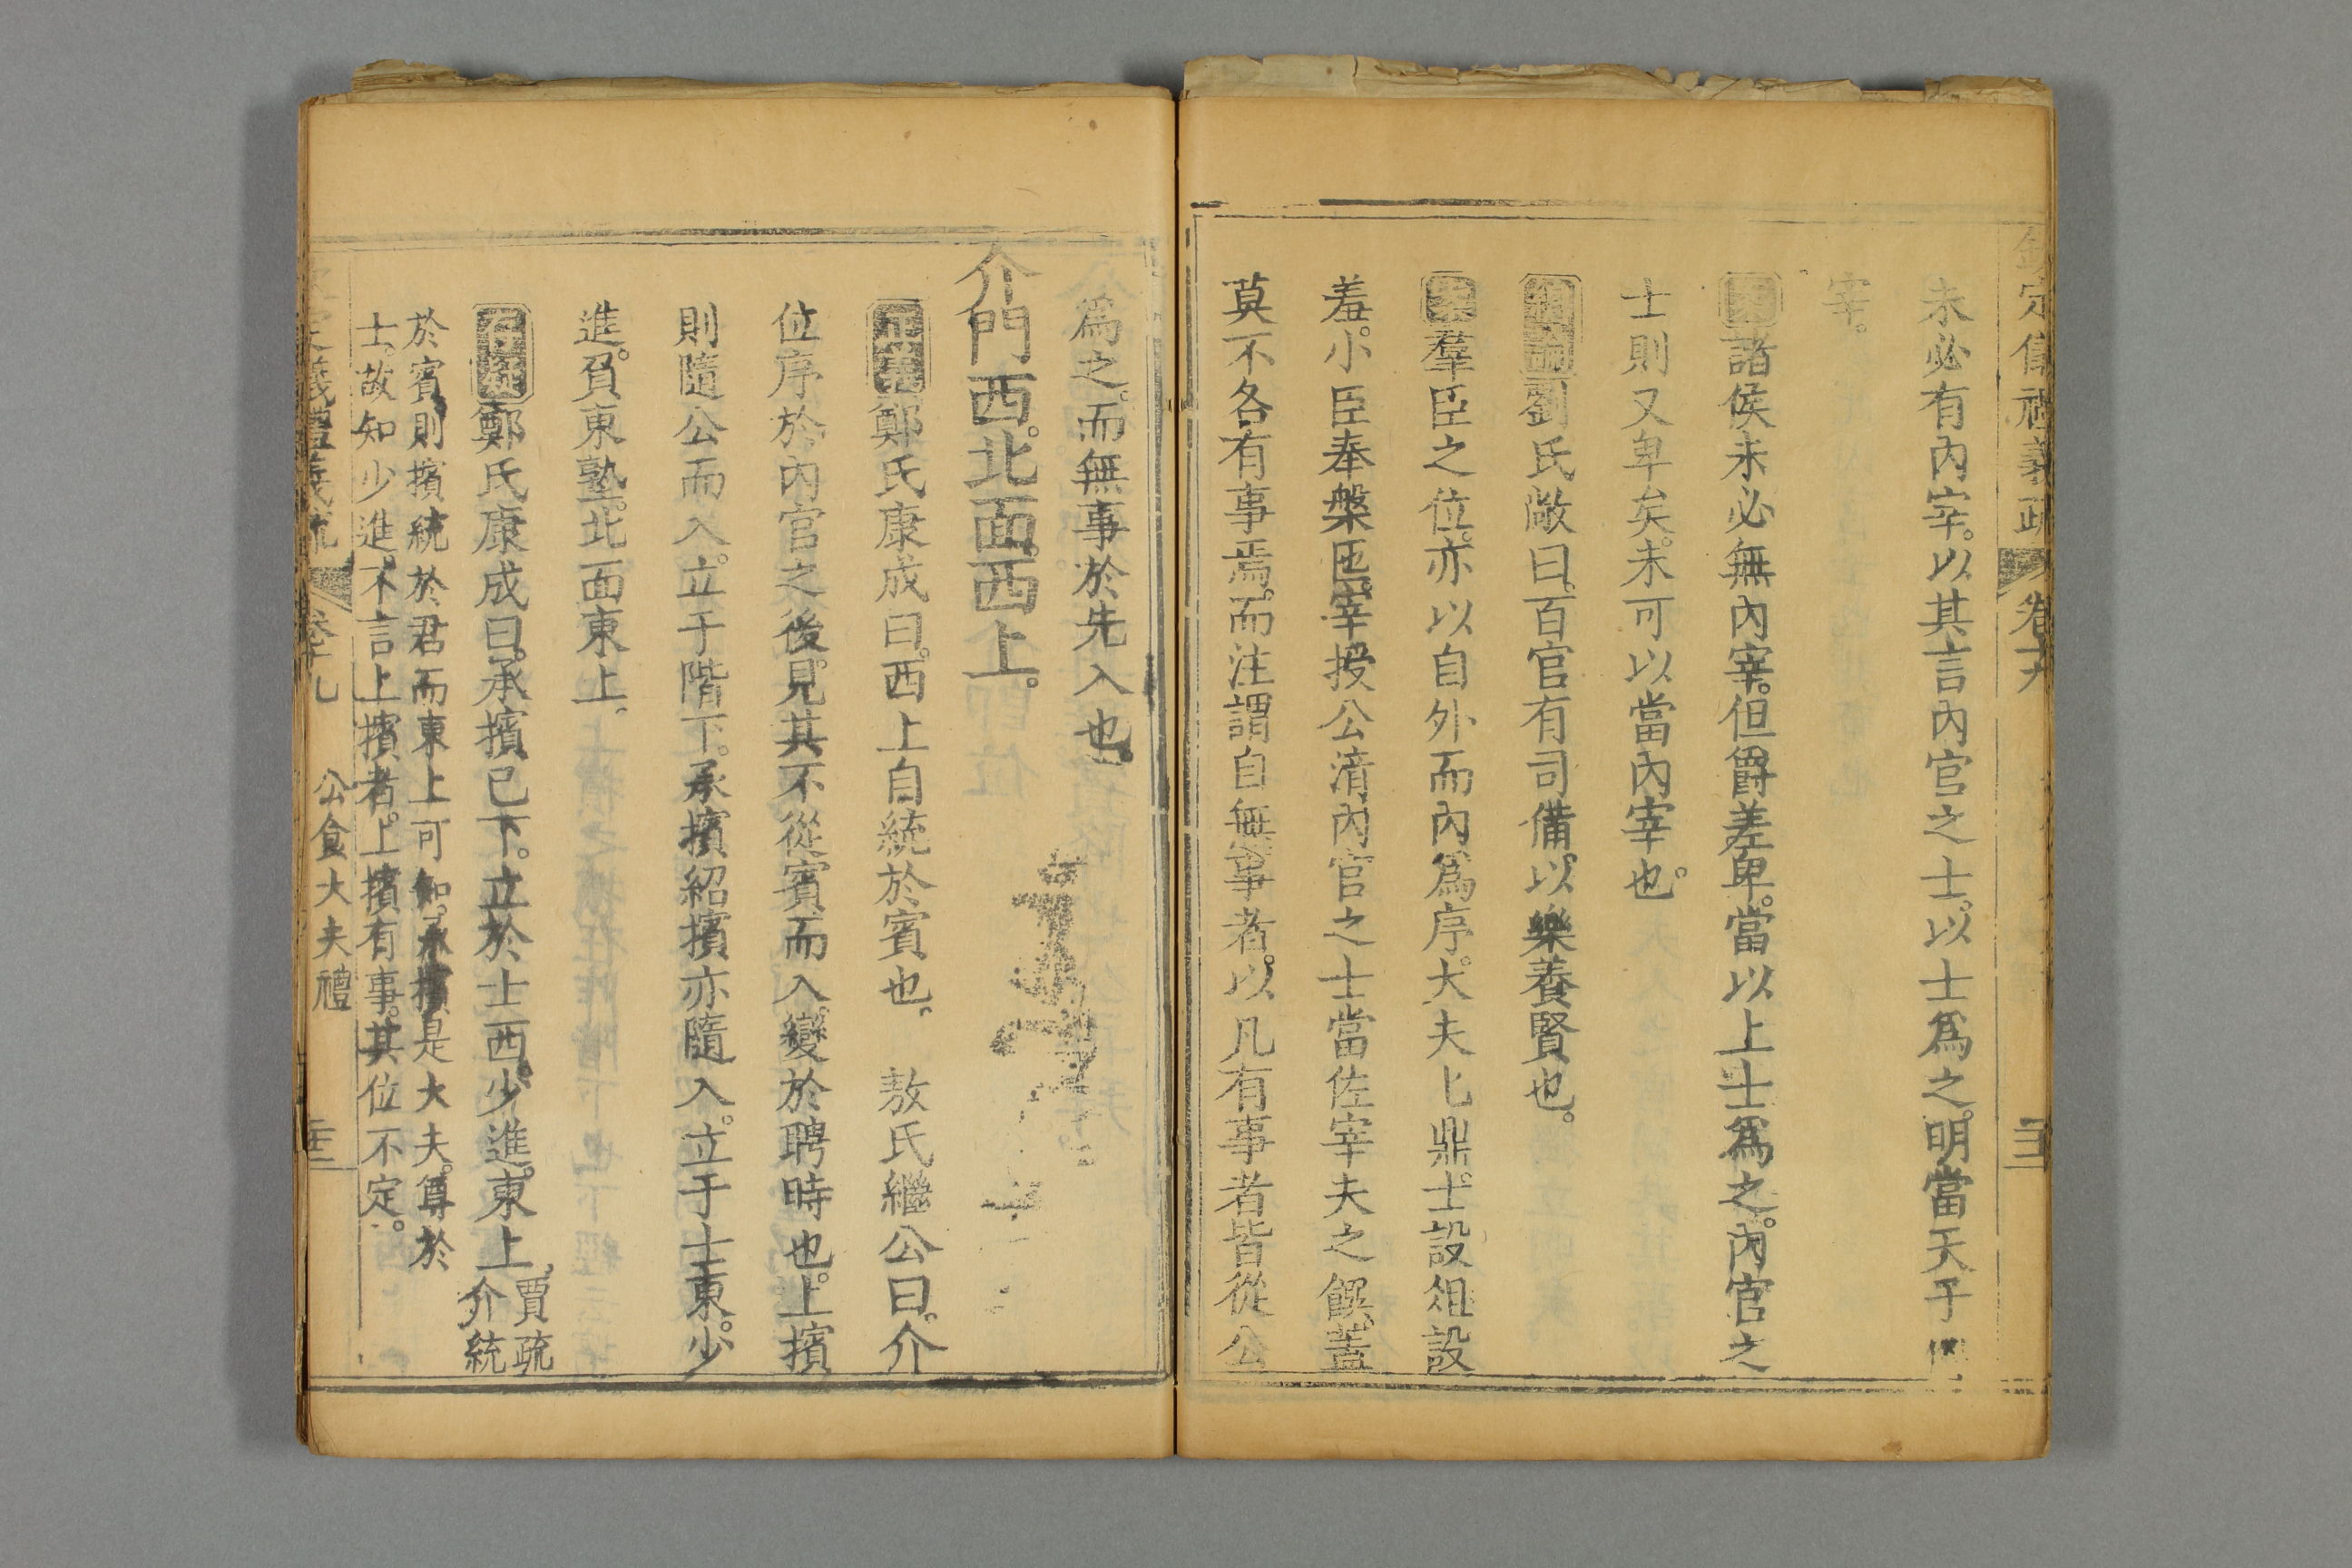 定儀禮義疏 卷十九
未必有內宰。以其言內官之士。以士爲之。明當天子
宰。
諸侯未必無內宰。但爵差卑。當以上士爲之。內官之
士則又卑矣。未可以當內宰也。
劉氏敞曰。百官有司備。以樂養賢也。
羣臣之位。亦以自外而內爲序。大夫匕鼎。士設俎設
羞。小臣奉槃匜。宰授公涪。內官之士當佐宰夫之饌。蓋
莫不各有事焉。而注謂自無事者。以凡有事者皆從公
爲之。而無事於先入也。
介門西。北面。西上。
正義鄭氏康成曰。西上自統於賓也。 敖氏繼公曰。介
位序於內官之後。見其不從賓而入。變於聘時也。上擯
則隨公而入。立于階下。承擯紹擯亦隨入。立于士東。少
進。負東塾。北面東上。
鄭氏康成曰。承擯已下。立於士西。少進。東上。
賈疏
介統
於賓則擯統於君而東上可知。承擯是大夫。尊於
士。故知少進。不言上擯者。上擯有事。其位不定。
義禮義疏 卷十九 公食大夫禮